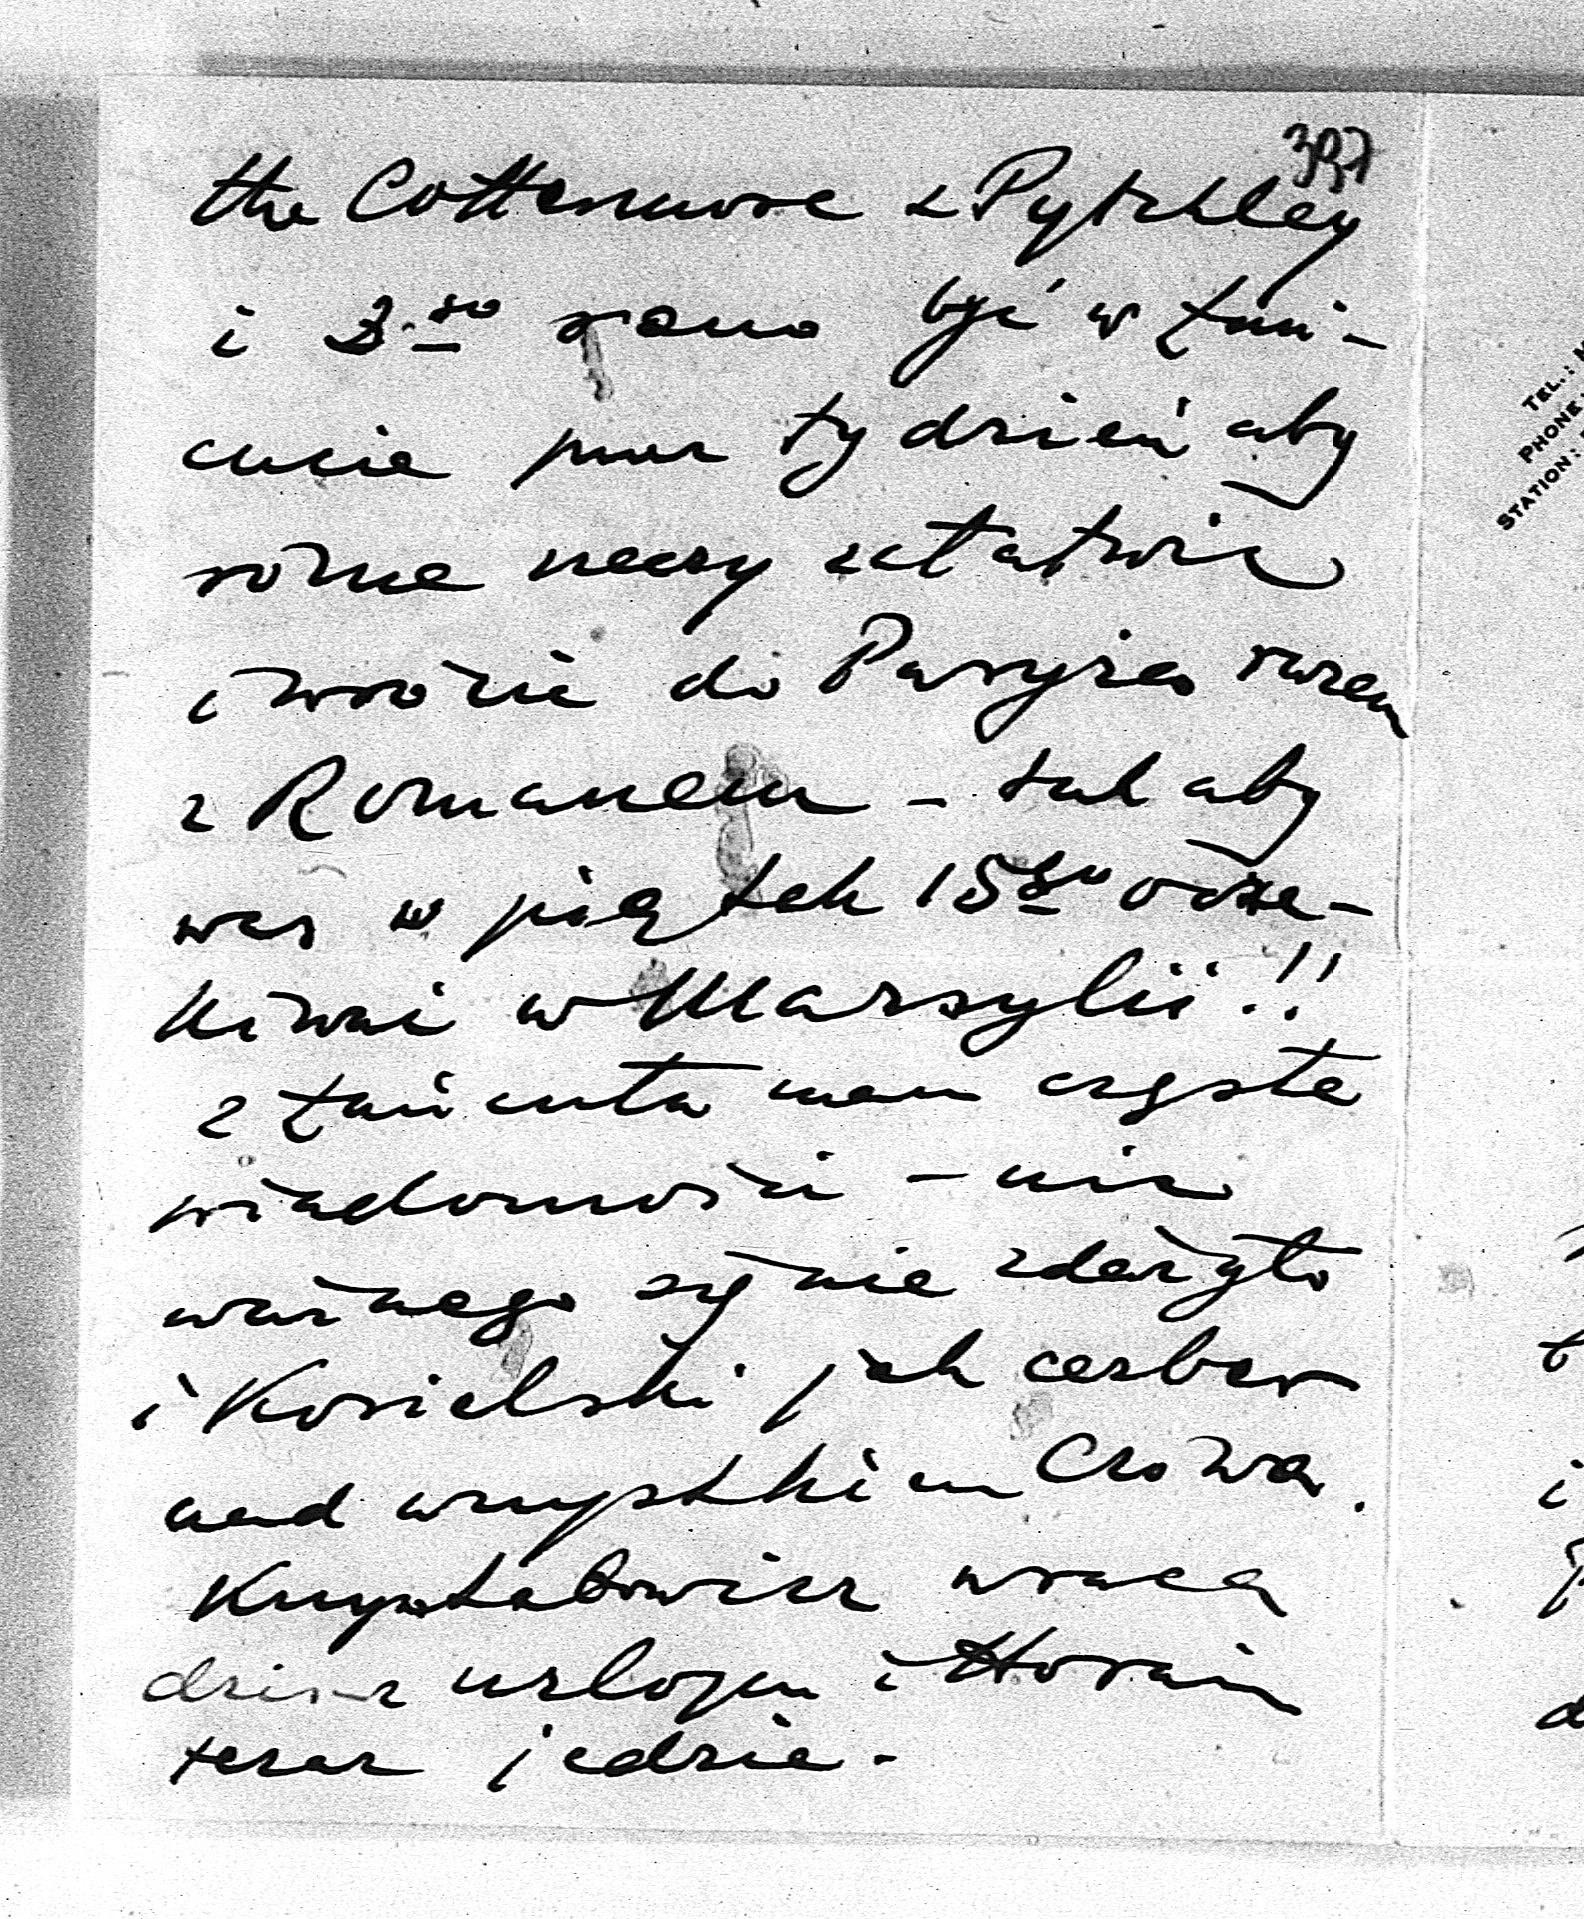 397
the Cottesmore & Pytchley
i 3-go rano być w Łań-
cucie parę tydzień aby
różne rzeczy załatwić
i wrócić do Paryża razem
z Romanem – tak aby
was w piątek 15go ocze-
kiwać w Marsylii!!
z Łańcuta mam częste
wiadomości – nic
ważnego się nie zdarzyło
i Kosielski jak cerber
nad wszystkiem czowa.
Krysztalowicz wraca
dziś z urlopu i Horain
teraz jedzie.
TEL.:
PHONE:
STATION: